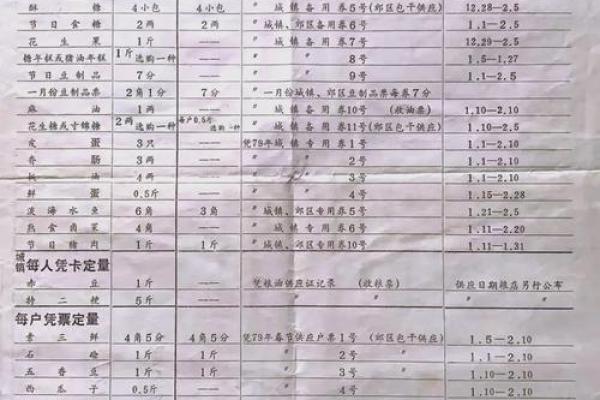 酥 糖 4小包 4小包 〃 城 镇 备 用 券 5号(郊区包干供应) 12.28—2.5
节 日 食 糖 2两 2两 〃 城镇、郊区备用券6号 1.1—2.5
花 生 果 1斤 —— 〃 城 镇 备 用 券 7号 12.29—2.5
糖年糕或猪油年糕 1斤选购一种 —— 〃 〃 8号 1.5—1.27
节 日 豆 制 品 7分 —— 〃 〃 9号 1.1—2.5
一月份豆制品票 2角1分 7分 〃 一月份城镇、郊区豆制品票每券7分
麻 油 1两 —— 〃 城 镇 备 用 券10号 (收油票) 1.10—2.10
花生糖或寸锦糖 2两选购一种 每户0.5斤选购一种 〃 城 镇 备 用 券11号(郊区包干供应) 1.1—2.10
皮 蛋 3只 —— 凭79年 城 镇 专 用 券 1号 1.1—2.10
香 肠 3两 —— 〃 〃 2号 1.1—2.10
油 4两 —— 〃 〃 3号 1.1—2.10
鲜 蛋 0.5斤 —— 〃 〃 4号 1.15—2.28
淡 海 水 鱼 6角 3角 〃 城镇、郊区专用券5号 1.21—2.5
熟 食 卤 菜 4角 —— 〃 城镇、郊区专用券6号 1.11—2.20
节 日 猪 肉 1斤 1斤 〃 城镇、郊区备用券10号 1.11—1.31
城镇每人凭卡定量
赤 豆 1斤 —— 凭粮油供应证记录 (收粮票) 供应日期粮店另行公布
特 二 粳 5斤 —— 〃 〃 〃
每户凭票定量
素 三 鲜 4角5分 4角5分 凭79年春节供应户票1号 (郊区包干供应) 1.5—2.10
石 1斤 1斤 〃 2号 〃 1.1—2.10
五 香 豆 1斤 1斤 〃 3号 〃 1.10—2.10
西 瓜 子 0.5斤 —— 〃 4号 1.10—2.10